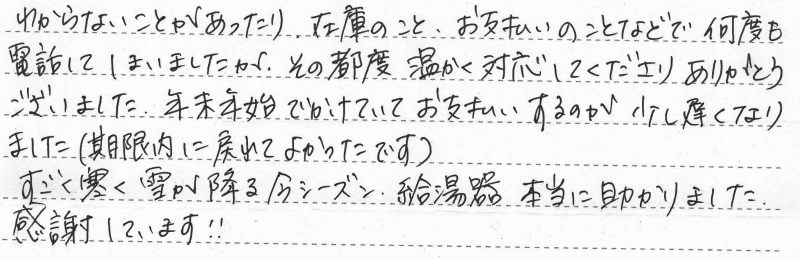 わからないことがあったり、在庫のこと、お支払いのことなどで何度も
電話してしまいましたが、その都度 温かく対応してくださり ありがとう
ございました。年末年始 でかけていて お支払い するのが 少し遅くなり
ました(期限内に戻れてよかったです)
すごく寒く 雪が降る今シーズン、給湯器 本当に助かりました。
感謝しています!!